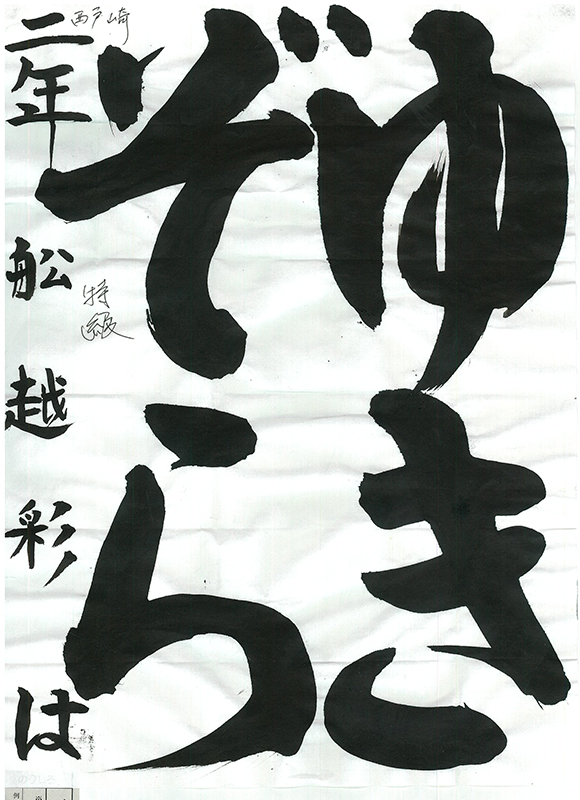 ゆき
ぞら
二年 船越彩は
西戸崎
特級